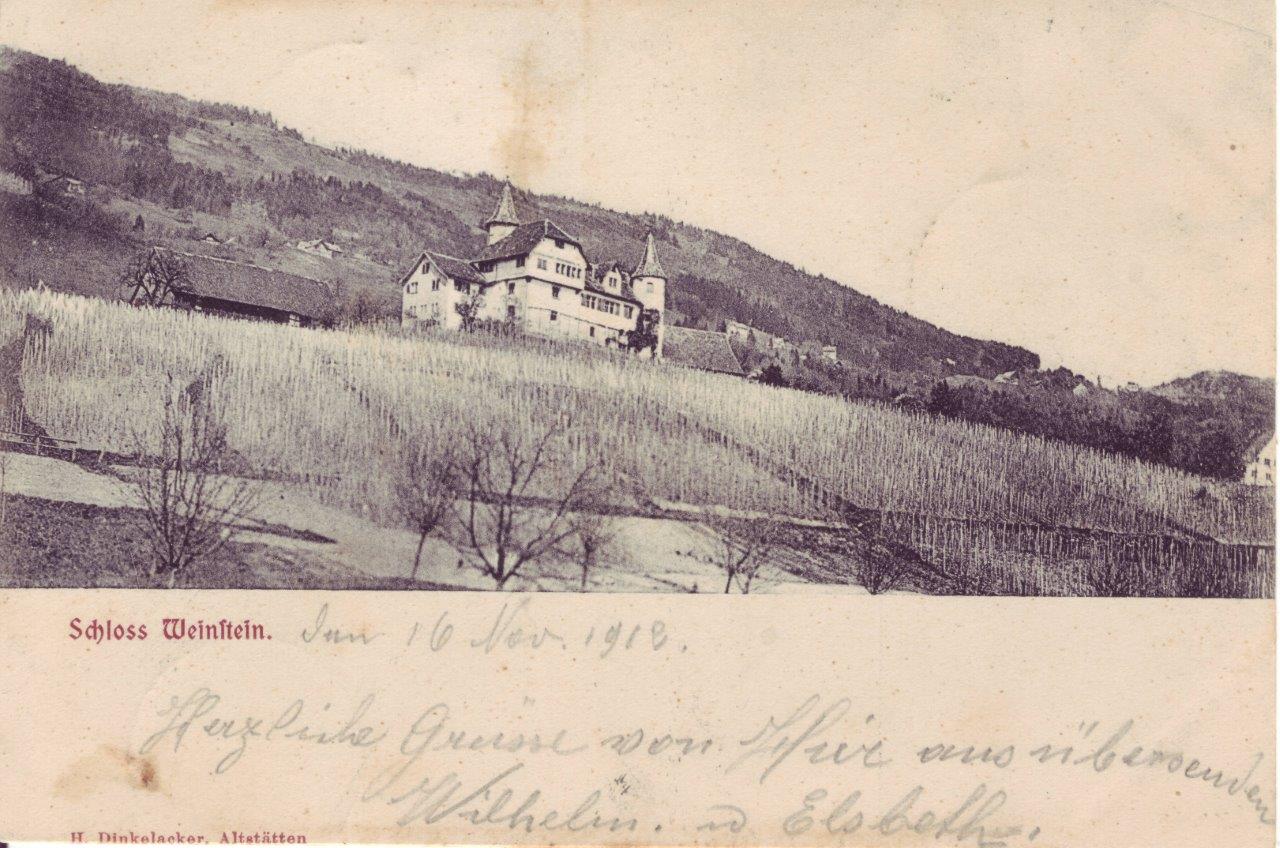 Schloss Weinstein.
Den 16 Nov. 1918.
Herzliche Grüsse von Hier aus übersenden
Wilhelm. u Elsbeth.
H. Dinkelacker, Altstätten